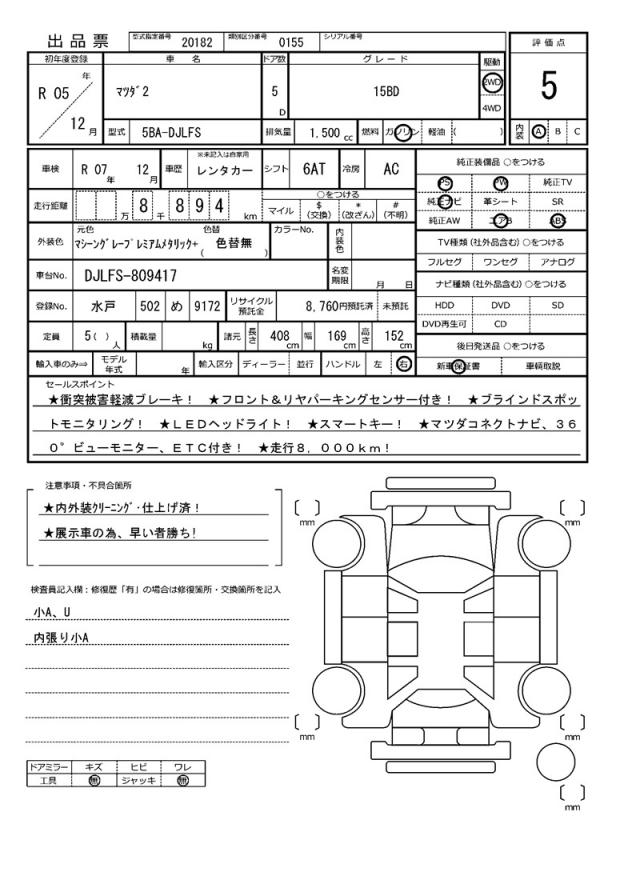 出品票 型式指定番号 20182 類別区分番号 0155 シリアル番号
評価点
5
内装 A B C
初年度登録 車名 ドア数 グレード 駆動
R 05 年 12 月 マツダ2 5 D 15BD 2WD 4WD
型式 5BA-DJLFS 排気量 1.500 cc 燃料 ガソリン 軽油 ( )
車検 R 07 年 12 月 車歴 ※未記入は自家用 レンタカー シフト 6AT 冷房 AC
走行距離 万 8 千 8 9 4 km
○をつける
マイル $ (交換) * (改ざん) # (不明)
外装色 元色 マシーングレープレミアムメタリック+ 色替 ( 色替無 ) カラーNo. 内装色
車台No. DJLFS-809417 名変期限 月 日
登録No. 水戸 502 め 9172 リサイクル預託金 8,760円預託済 未預託
定員 5( ) 人 積載量 kg 諸元 長さ 408 cm 幅 169 cm 高さ 152 cm
輸入車のみ⇒ モデル年式 年 輸入区分 ディーラー 並行 ハンドル 左 右
純正装備品 ○をつける
PS PW 純正TV
純正ナビ 革シート SR
純正AW エアB ABS
TV種類 (社外品含む) ○をつける
フルセグ ワンセグ アナログ
ナビ種類 (社外品含む) ○をつける
HDD DVD SD
DVD再生可 CD
後日発送品 ○をつける
新車保証書 車輌取説
セールスポイント
★衝突被害軽減ブレーキ! ★フロント&リヤパーキングセンサー付き! ★ブラインドスポッ
トモニタリング! ★LEDヘッドライト! ★スマートキー! ★マツダコネクトナビ、36
0°ビューモニター、ETC付き! ★走行8,000km!
注意事項・不具合箇所
★内外装クリーニング・仕上げ済!
★展示車の為、早い者勝ち!
検査員記入欄:修復歴「有」の場合は修復箇所・交換箇所を記入
小A、U
内張り小A
ドアミラー キズ ヒビ ワレ
工具 無 ジャッキ 無
[ ] mm
[ ] mm
[ ] mm
[ ] mm
[ ] mm